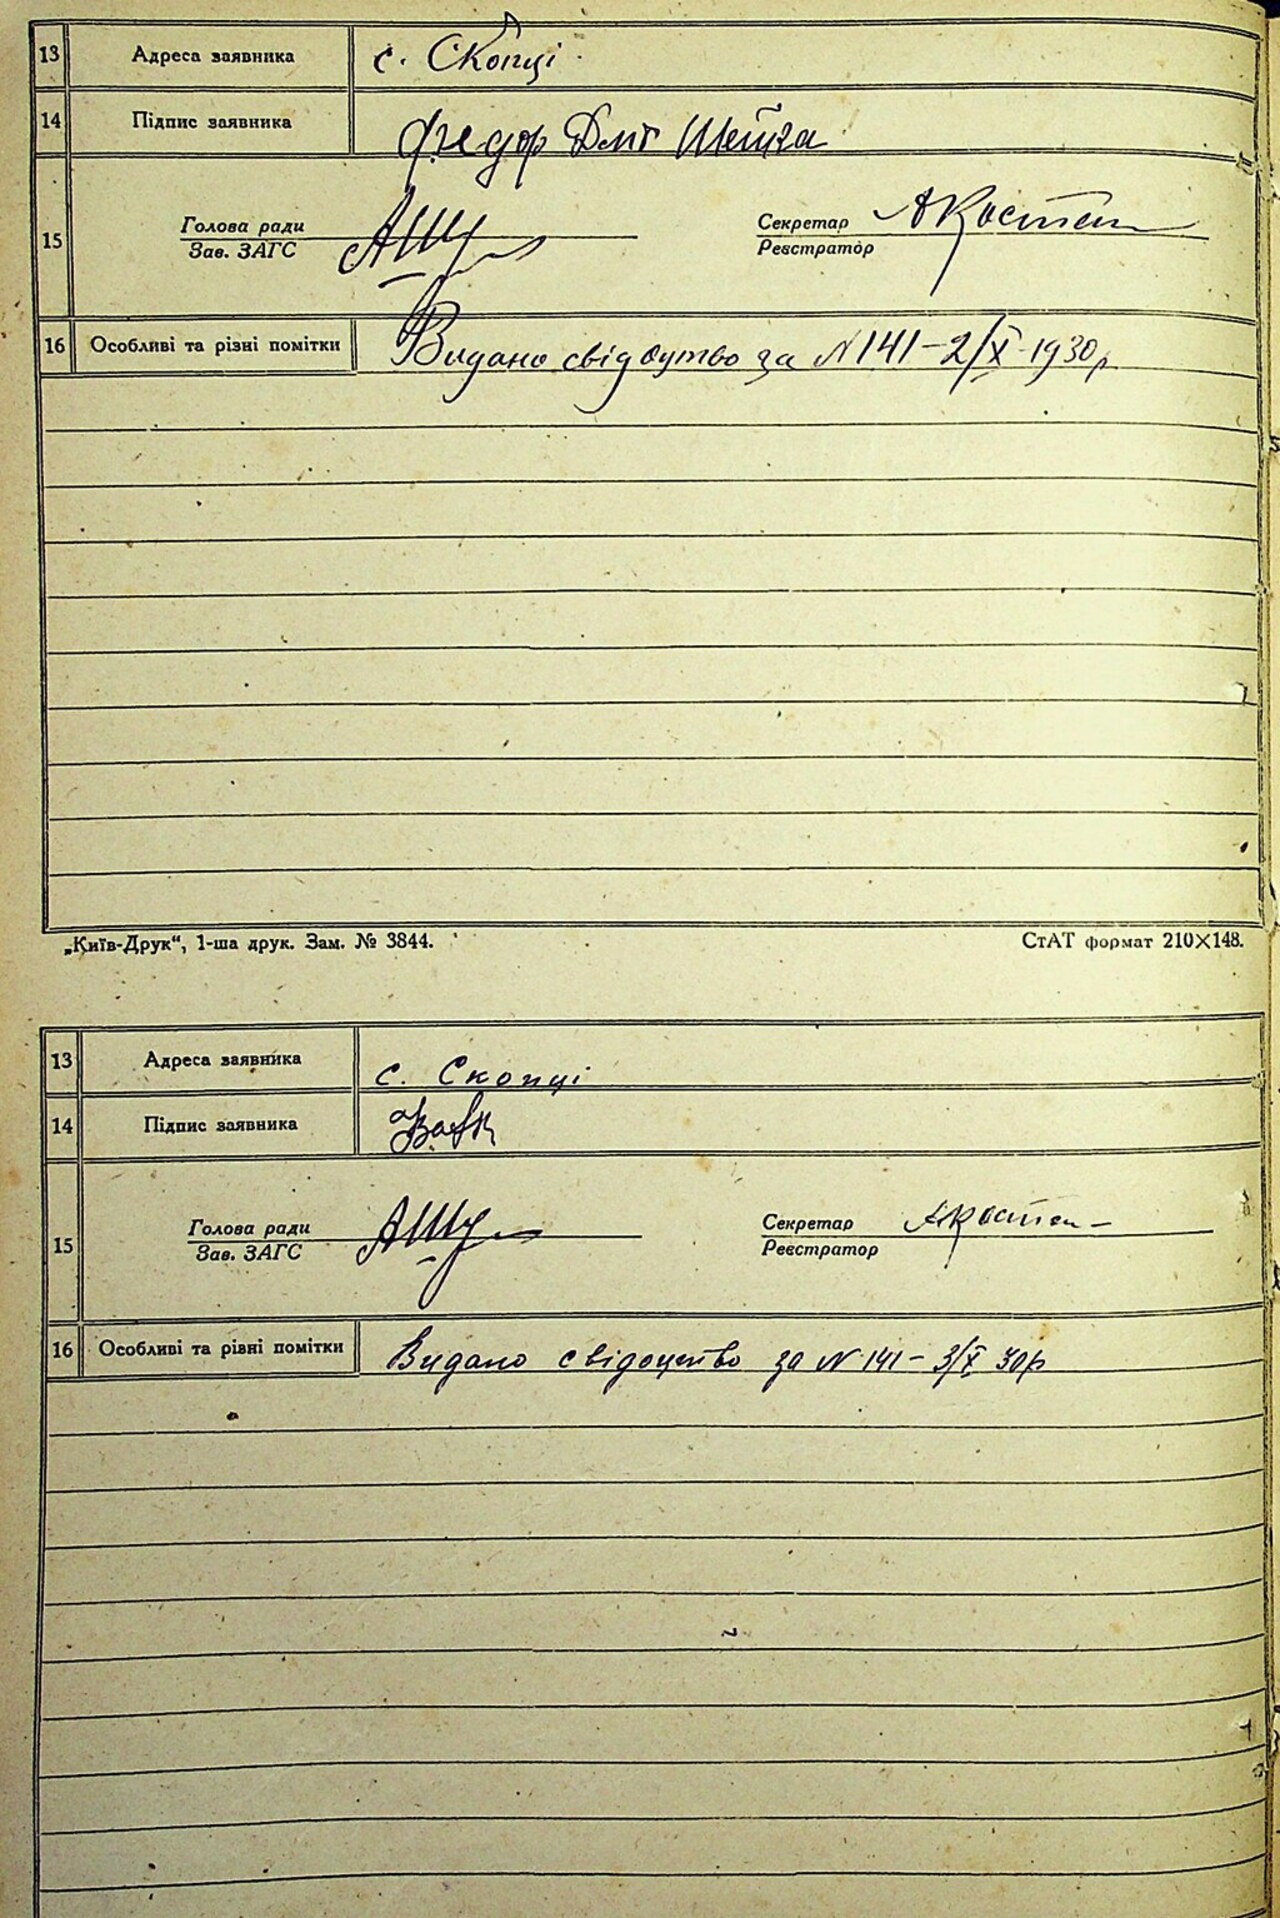 13 Адреса заявника с. Скопці
14 Підпис заявника Федор Дмт
15 Голова ради Секретар АКостен
Зав. ЗАГС Реєстратор
16 Особливі та різні помітки Видано свідоцтво за N 141–2/X 1930р
„Київ-Друк“, 1-ша друк. Зам. № 3844. СтАТ формат 210×148.
13 Адреса заявника с. Скопці
14 Підпис заявника
15 Голова ради Секретар АКостен
Зав. ЗАГС Реєстратор
16 Особливі та різні помітки Видано свідоцтво за N 141–3/X 30р